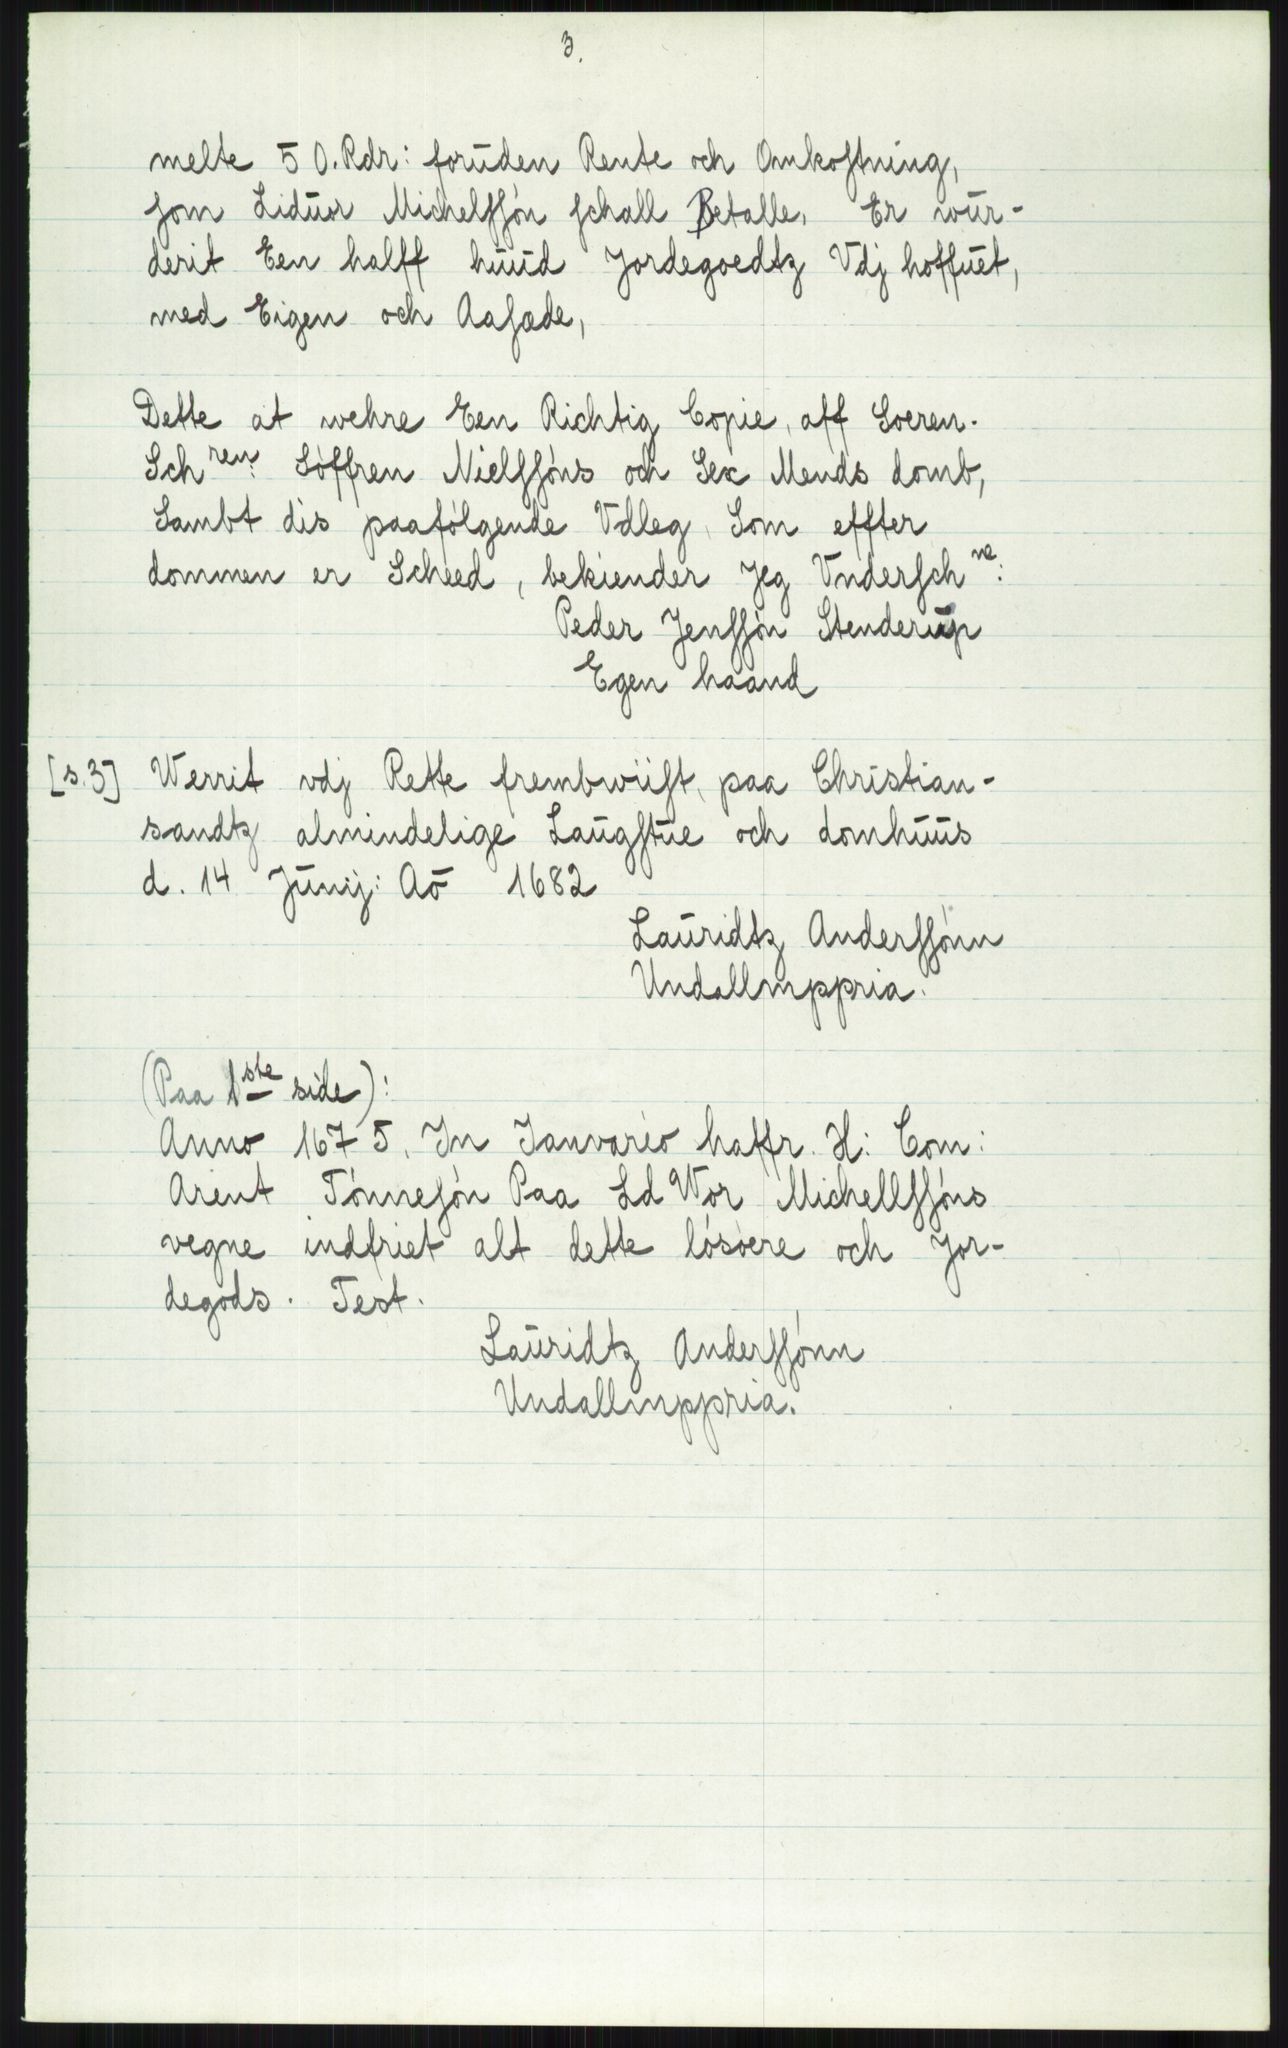 3.
melte 50. Rdr: foruden Rente och Omkostning,
som Liduor Michelssøn schall Betalle, Er wur-
derit Een halff huud Jordegoedtz Vdj hoffuet,
med Eigen och Aasæde,
Dette at wehre Een Richtig Copie, aff Soeren-
Schren: Søffren Nielssøns och Sex Mends domb,
Sambt dis paafølgende Vdleg, Som effter
dommen er Scheed, bekiender Jeg Vnderschne:
Peder Jenssøn Stenderup
Egen haand
[s.3] Werrit vdj Rette frembwiist, paa Christian-
sandtz almindelige Laugstue och domhuus
d. 14 Junij: Aō 1682
Lauridtz Anderssønn
Undallmppria.
(Paa 1ste side):
Anno 1675. In Ianvario haffr. H: Com:
Arent Tønnesøn Paa Ld Wor Michellssøns
vegne indfriet alt dette løsøere och Jor-
degods. Test.
Lauridtz Anderssønn
Undallmppria.